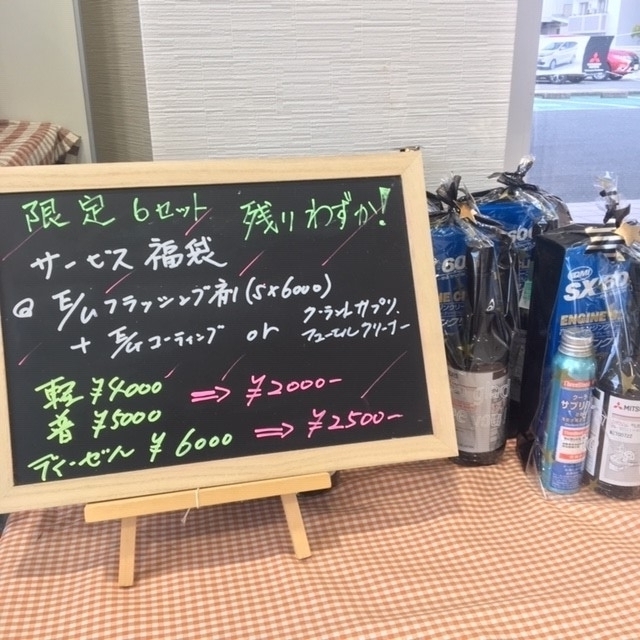 限定 6セット 残りわずか!
サービス 福袋
@ E/G フラッシング剤 (SX6000)
+ E/G コーティング or クーラントサプリ.
フューエルクリーナー
軽 ¥4000 ⇒ ¥2000-
普 ¥5000
ディーゼル ¥6000 ⇒ ¥2500-
SX60
ENGINE
サプリ
MITS